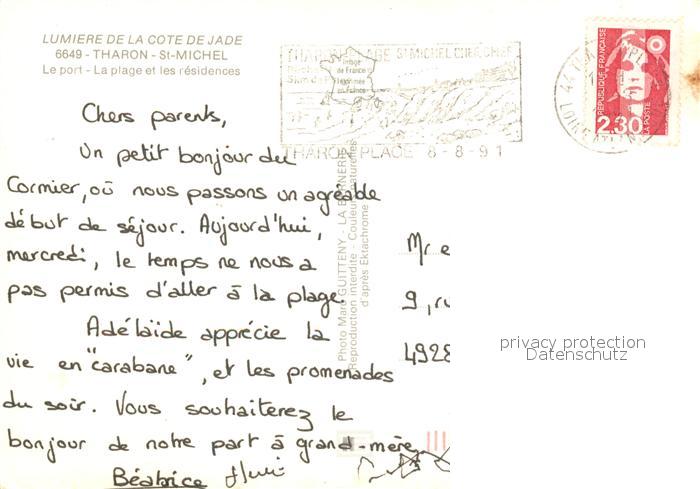 LUMIERE DE LA COTE DE JADE
6649 - THARON - St-MICHEL
Le port - La plage et les résidences
THARON PLAGE St MICHEL CHEF CHEF
Image
de France
imprimée
en France
THARON PLAGE 8-8-91
44
LOIRE
RÉPUBLIQUE FRANÇAISE
2,30
LA POSTE
Chers parents,
Un petit bonjour du
Cormier, où nous passons un agréable
début de séjour. Aujourd'hui,
mercredi, le temps ne nous a
pas permis d'aller à la plage.
Adélaïde apprécie la
vie en "carabane", et les promenades
du soir. Vous souhaiterez le
bonjour de notre part à grand-mère
Béatrice
Photo Marc GUITTENY - LA BERNERIE
Reproduction interdite - Couleurs naturelles
d'après Ektachrome
Mr e
9, ru
4928
privacy protection
Datenschutz